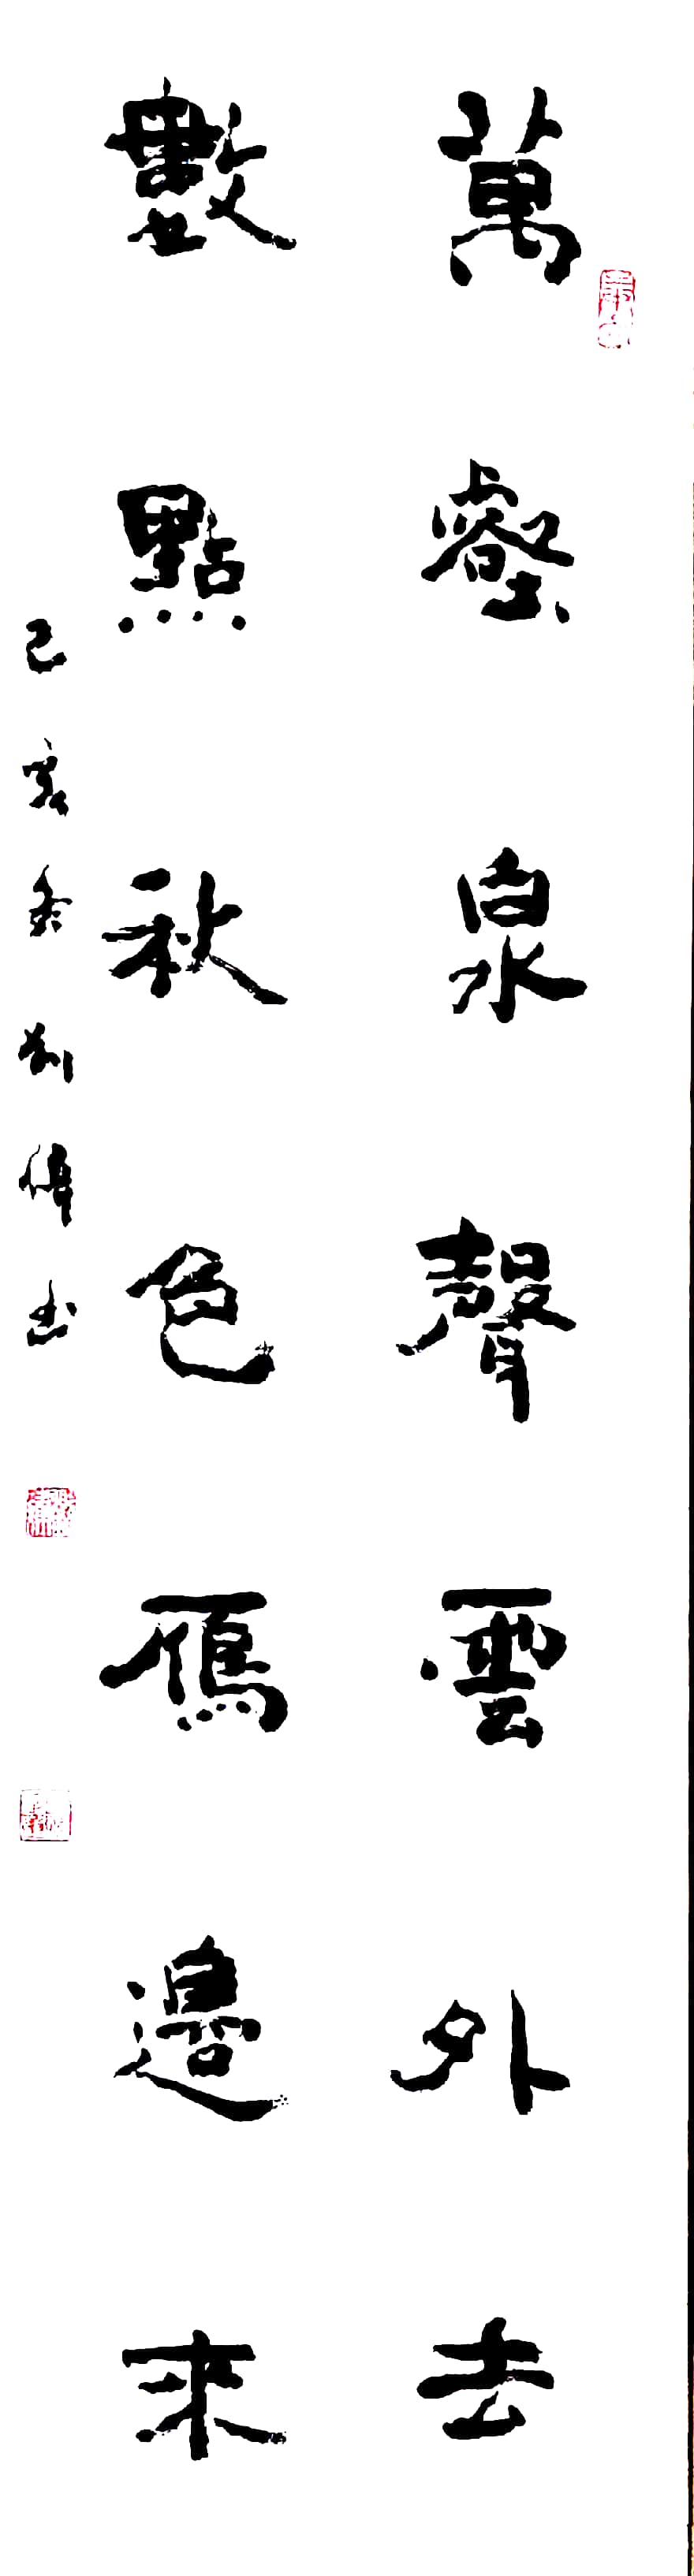 萬壑泉聲雲外去
數點秋色雁邊來
己亥冬劉偉書